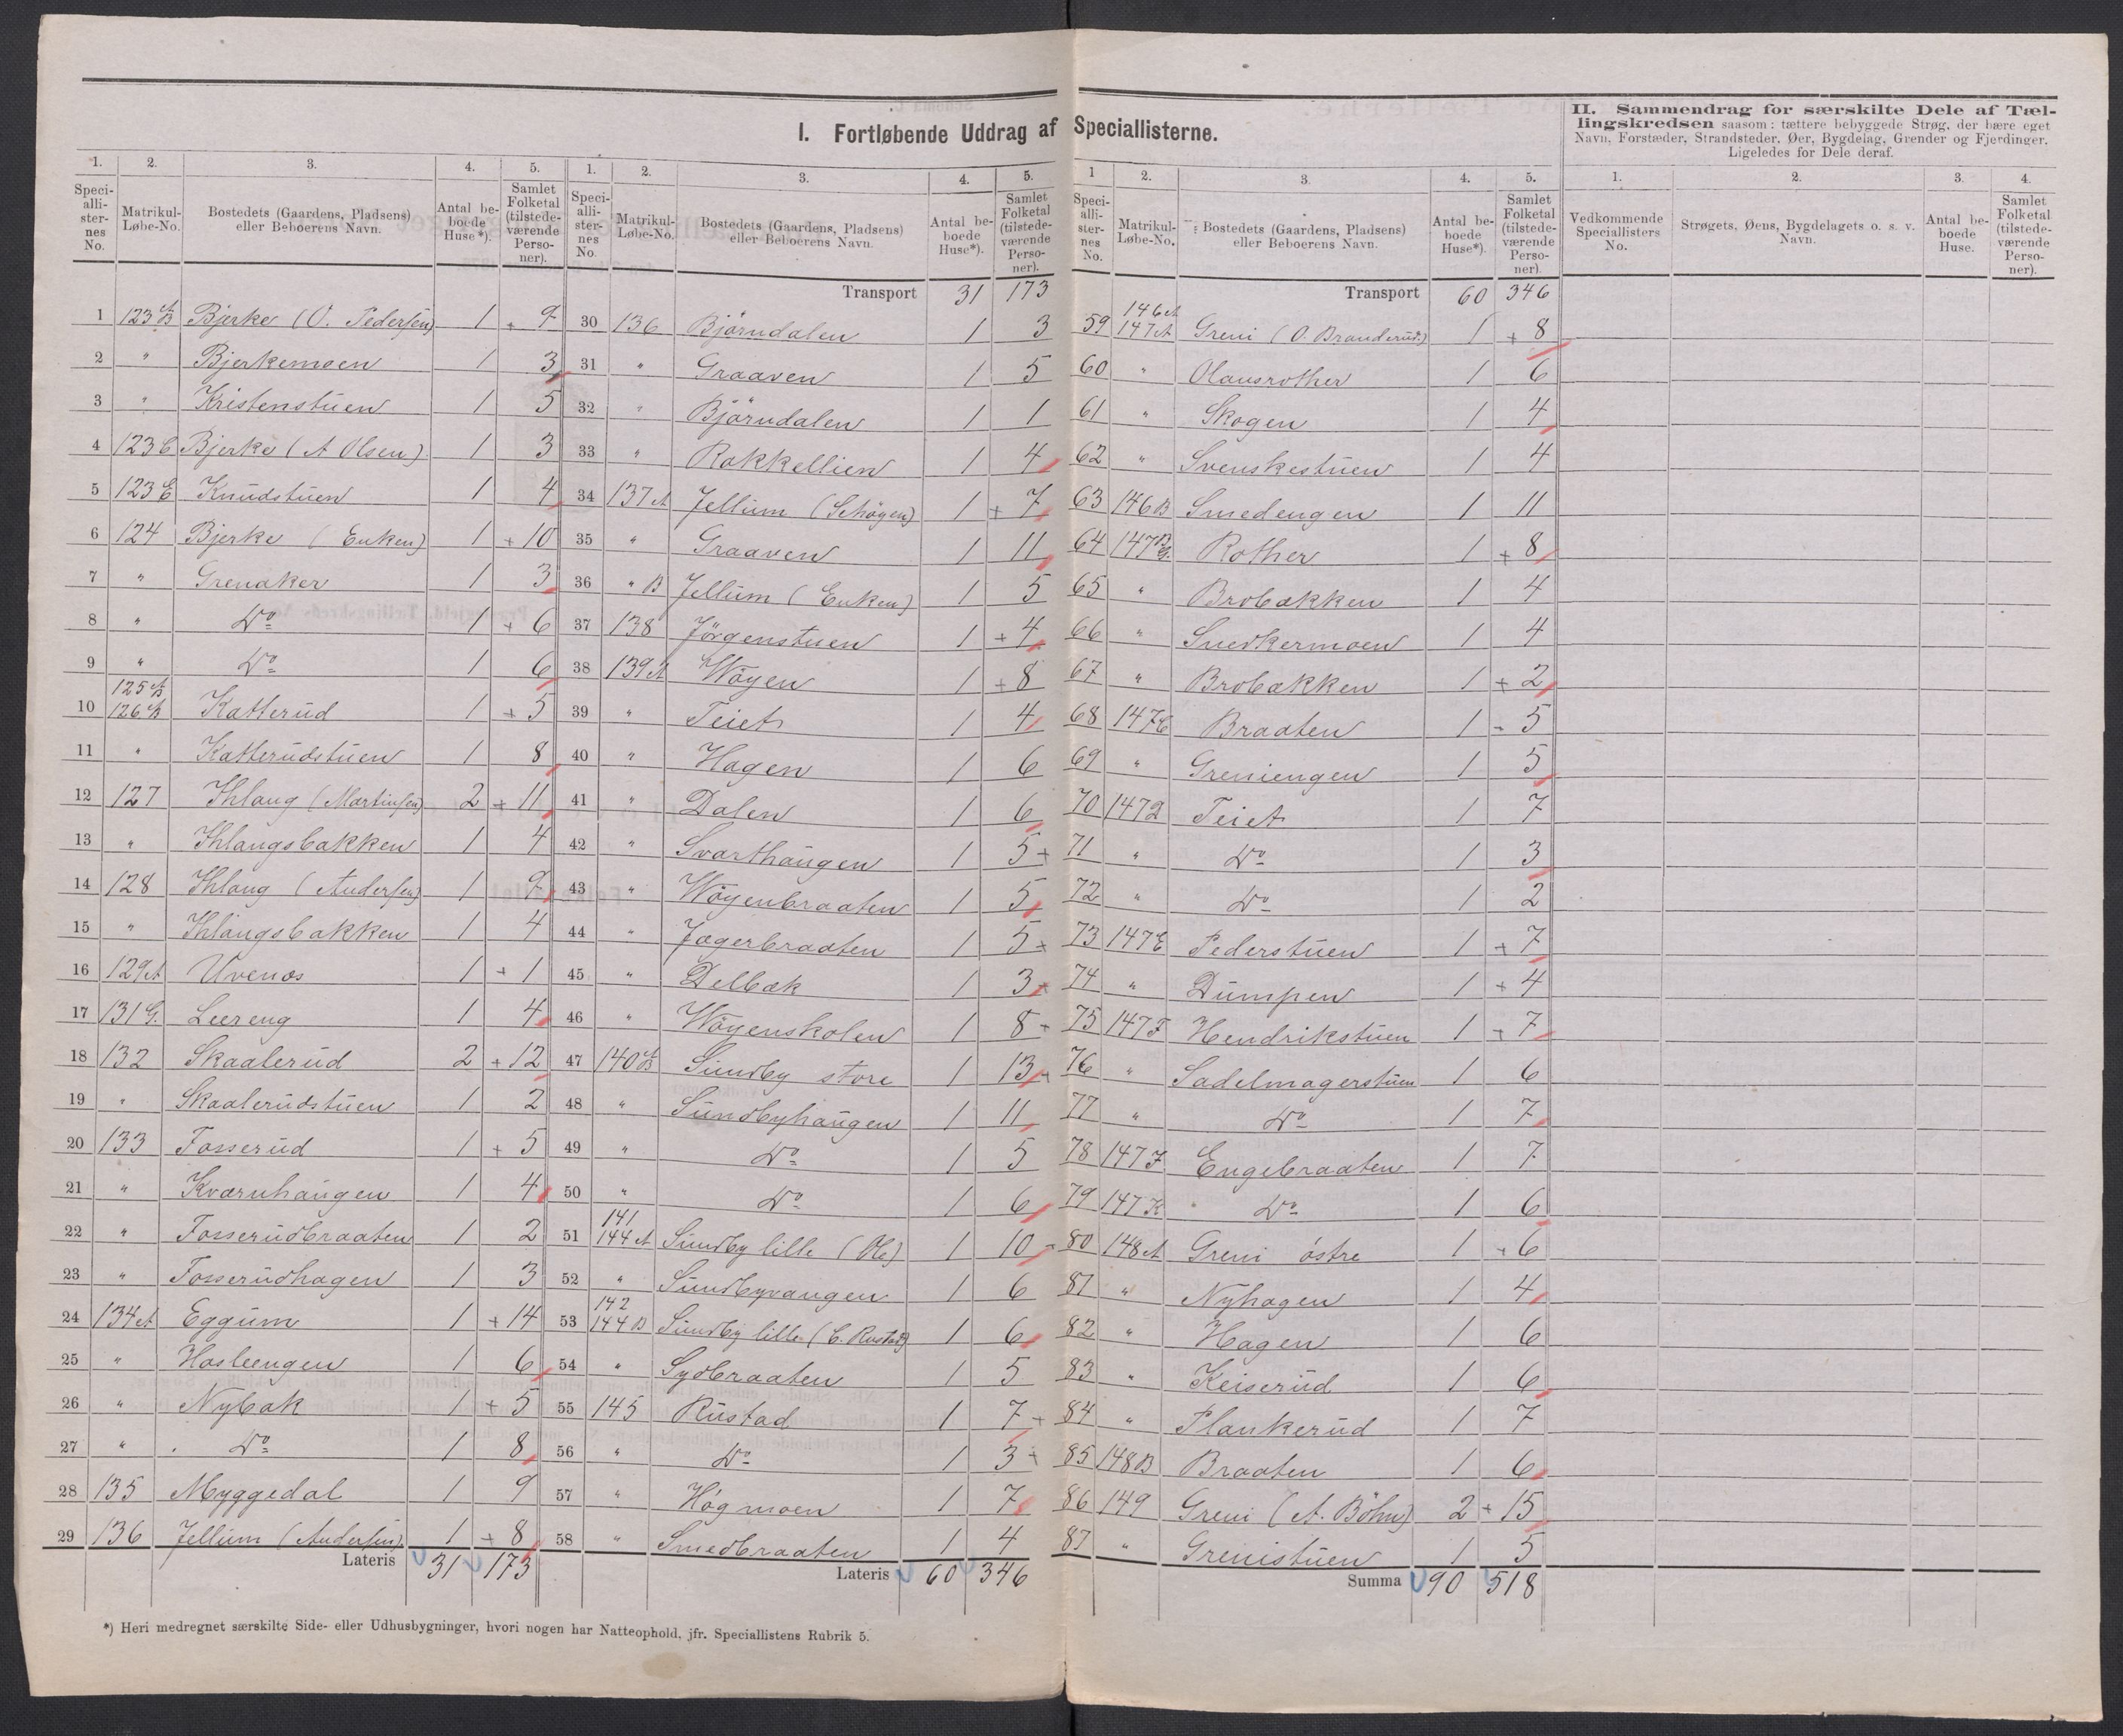 I. Fortløbende Uddrag af Speciallisterne.
1. 2. 3. 4. 5.
Speciallisternes No. Matrikul-Løbe-No. Bostedets (Gaardens, Pladsens) eller Beboerens Navn. Antal beboede Huse*). Samlet Folketal (tilstedeværende Personer).
1 123 A B Bjerke (O. Pedersen) 1 + 9
2 " Bjerkemoen 1 3
3 " Kristenstuen 1 5
4 123 C Bjerke (A Olsen) 1 3
5 123 E Knudstuen 1 4
6 124 Bjerke (Enken) 1 + 10
7 " Grenaker 1 3
8 " Do 1 + 6
9 " Do 1 6
10 125 A B 126 A B Katterud 1 + 5
11 " Katterudstuen 1 8
12 127 Ihlang (Martinsen) 2 + 11
13 " Ihlangsbakken 1 4
14 128 Ihlang (Andersen) 1 9
15 " Ihlangsbakken 1 4
16 129 A Uvenos 1 + 1
17 131 G. Leereng 1 4
18 132 Skaalerud 2 + 12
19 " Skaalerudstuen 1 2
20 133 Fosserud 1 + 5
21 " Kværnhaugen 1 4
22 " Fosserudbraaten 1 2
23 " Fosserudhagen 1 3
24 134 A Eggum 1 + 14
25 " Hasleengen 1 6
26 " Nybak 1 + 5
27 " Do 1 8
28 135 Myggedal 1 9
29 136 Jellum (Andersen) 1 + 8
Lateris 31 173
1. 2. 3. 4. 5.
Speciallisternes No. Matrikul-Løbe-No. Bostedets (Gaardens, Pladsens) eller Beboerens Navn. Antal beboede Huse*). Samlet Folketal (tilstedeværende Personer).
Transport 31 173
30 136 Bjørndalen 1 3
31 " Graaven 1 5
32 " Bjørndalen 1 1
33 " Rakkellien 1 4
34 137 A Jellum (Schøyen) 1 + 7
35 " Graaven 1 11
36 " B Jellum (Enken) 1 5
37 138 Jørgenstuen 1 + 4
38 139 A Wøyen 1 + 8
39 " Teiet 1 4
40 " Hagen 1 6
41 " Dalen 1 6
42 " Svarthaugen 1 5 +
43 " Wøyenbraaten 1 5
44 " Jægerbraaten 1 5 +
45 " Delbæk 1 3 +
46 " Wøyenskolen 1 8 +
47 140 A B Sundby store 1 13 +
48 " Sundbyhaugen 1 11
49 " Do 1 5
50 " Do 1 6
51 141 144 A Sundby lille (Ole) 1 10 +
52 " Sundbyvangen 1 6
53 142 144 B Sundby lille (C. Rustad) 1 6
54 " Sydbraaten 1 5
55 145 Rustad 1 7 +
56 " Do 1 3 +
57 " Høgmoen 1 7
58 " Smedbraaten 1 4
Lateris 60 346
1 2. 3. 4. 5.
Speciallisternes No. Matrikul-Løbe-No. Bostedets (Gaardens, Pladsens) eller Beboerens Navn. Antal beboede Huse*). Samlet Folketal (tilstedeværende Personer).
Transport 60 346
59 146 A 147 A Greni (O. Branderud) 1 + 8
60 " Olausrother 1 6
61 " Skogen 1 4
62 " Svenskestuen 1 4
63 146 B Smedengen 1 11
64 147 B G. Rother 1 + 8
65 " Brobækken 1 4
66 " Snedkermoen 1 4
67 " Brobækken 1 + 2
68 147 C Braaten 1 - 5
69 " Greniengen 1 5
70 147 D Teiet 1 7
71 " Do 1 3
72 " Do 1 2
73 147 E Pederstuen 1 + 7
74 " Dumpen 1 + 4
75 147 F Hendrikstuen 1 + 7
76 " Sadelmagerstuen 1 6
77 " Do 1 7
78 147 J Engebraaten 1 7
79 147 K Do 1 6
80 148 A Greni østre 1 + 6
81 " Nyhagen 1 4
82 " Hagen 1 6
83 " Keiserud 1 6
84 " Plankerud 1 7
85 148 B Braaten 1 6
86 149 Greni (A. Bøhn) 2 + 15
87 " Grenistuen 1 5
Summa 90 518
II. Sammendrag for særskilte Dele af Tællingskredsen saasom: tættere bebyggede Strøg, der bære eget
Navn, Forstæder, Strandsteder, Øer, Bygdelag, Grender og Fjerdinger.
Ligeledes for Dele deraf.
1. 2. 3. 4.
Vedkommende Speciallisters No. Strøgets, Øens, Bygdelagets o. s. v. Navn. Antal beboede Huse. Samlet Folketal (tilstedeværende Personer).
*) Heri medregnet særskilte Side- eller Udhusbygninger, hvori nogen har Natteophold, jfr. Speciallistens Rubrik 5.